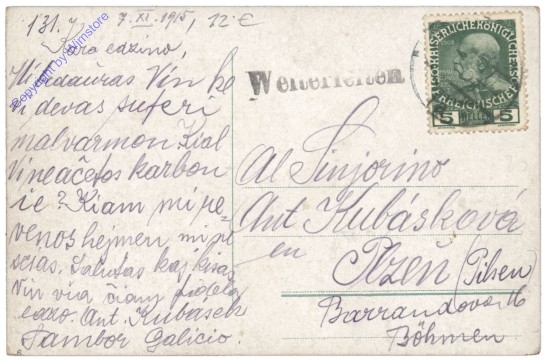 131. 7. XI. 1915, 12.€
Kara edzino,
Mi bedaŭras Vin ke
Vi devas suferi
malvarmon Kial
Vi neaĉetos karbon
ie? Kiam mi re-
venos hejmen mi pli
scias. Salutas kaj kisas
Vin via ĉiam fidela
edzo. Ant. Kubásek
Sambor Galicio.
Copyright by Wimstore
Weiterleiten
KAISERLICHEKÖNIGLICHE ÖST
ERREICHISCHE
5 HELLER 5
Al Sinjorino
Ant Kubásková
en Plzeň (Pilsen)
Barrandova 16
Böhmen